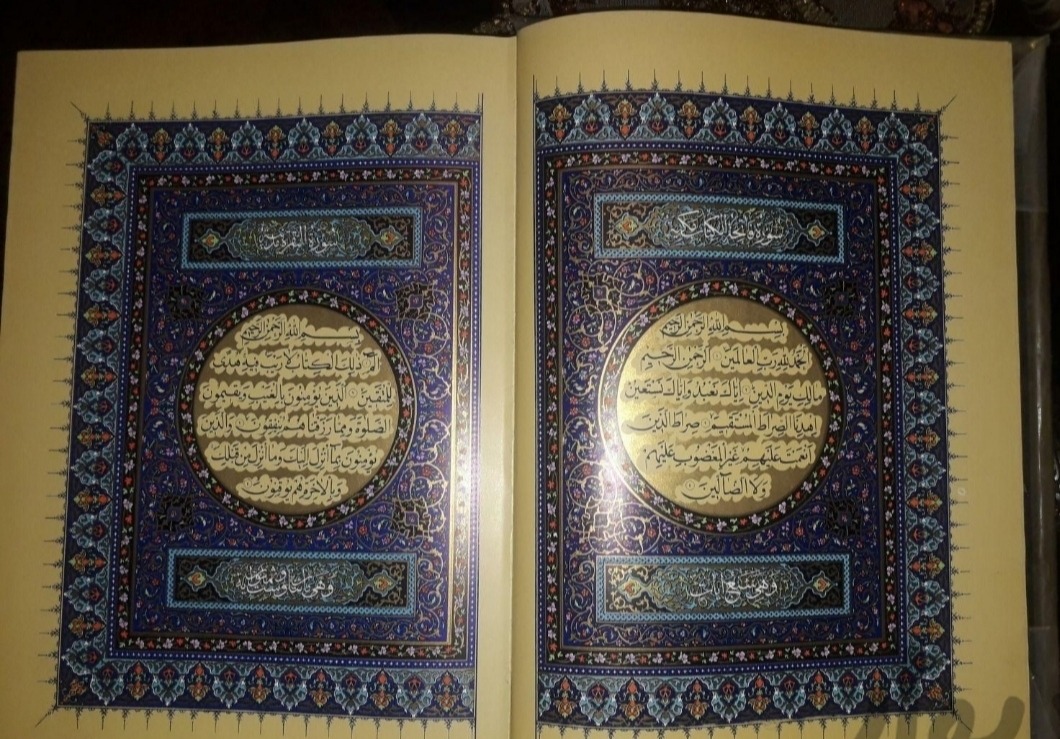 سورة فاتحة الكتاب
بسم الله الرحمن الرحيم
الحمد لله رب العالمين الرحمن الرحيم
مالك يوم الدين اياك نعبد واياك نستعين
اهدنا الصراط المستقيم صراط الذين
انعمت عليهم غير المغضوب عليهم
ولا الضالين
وهي سبع آيات
سورة البقرة
بسم الله الرحمن الرحيم
الم ذلك الكتاب لا ريب فيه هدى
للمتقين الذين يؤمنون بالغيب ويقيمون
الصلوة ومما رزقناهم ينفقون والذين
يؤمنون بما أنزل اليك وما أنزل من قبلك
وبالآخرة هم يوقنون
وهي مائتان وست وثمانون